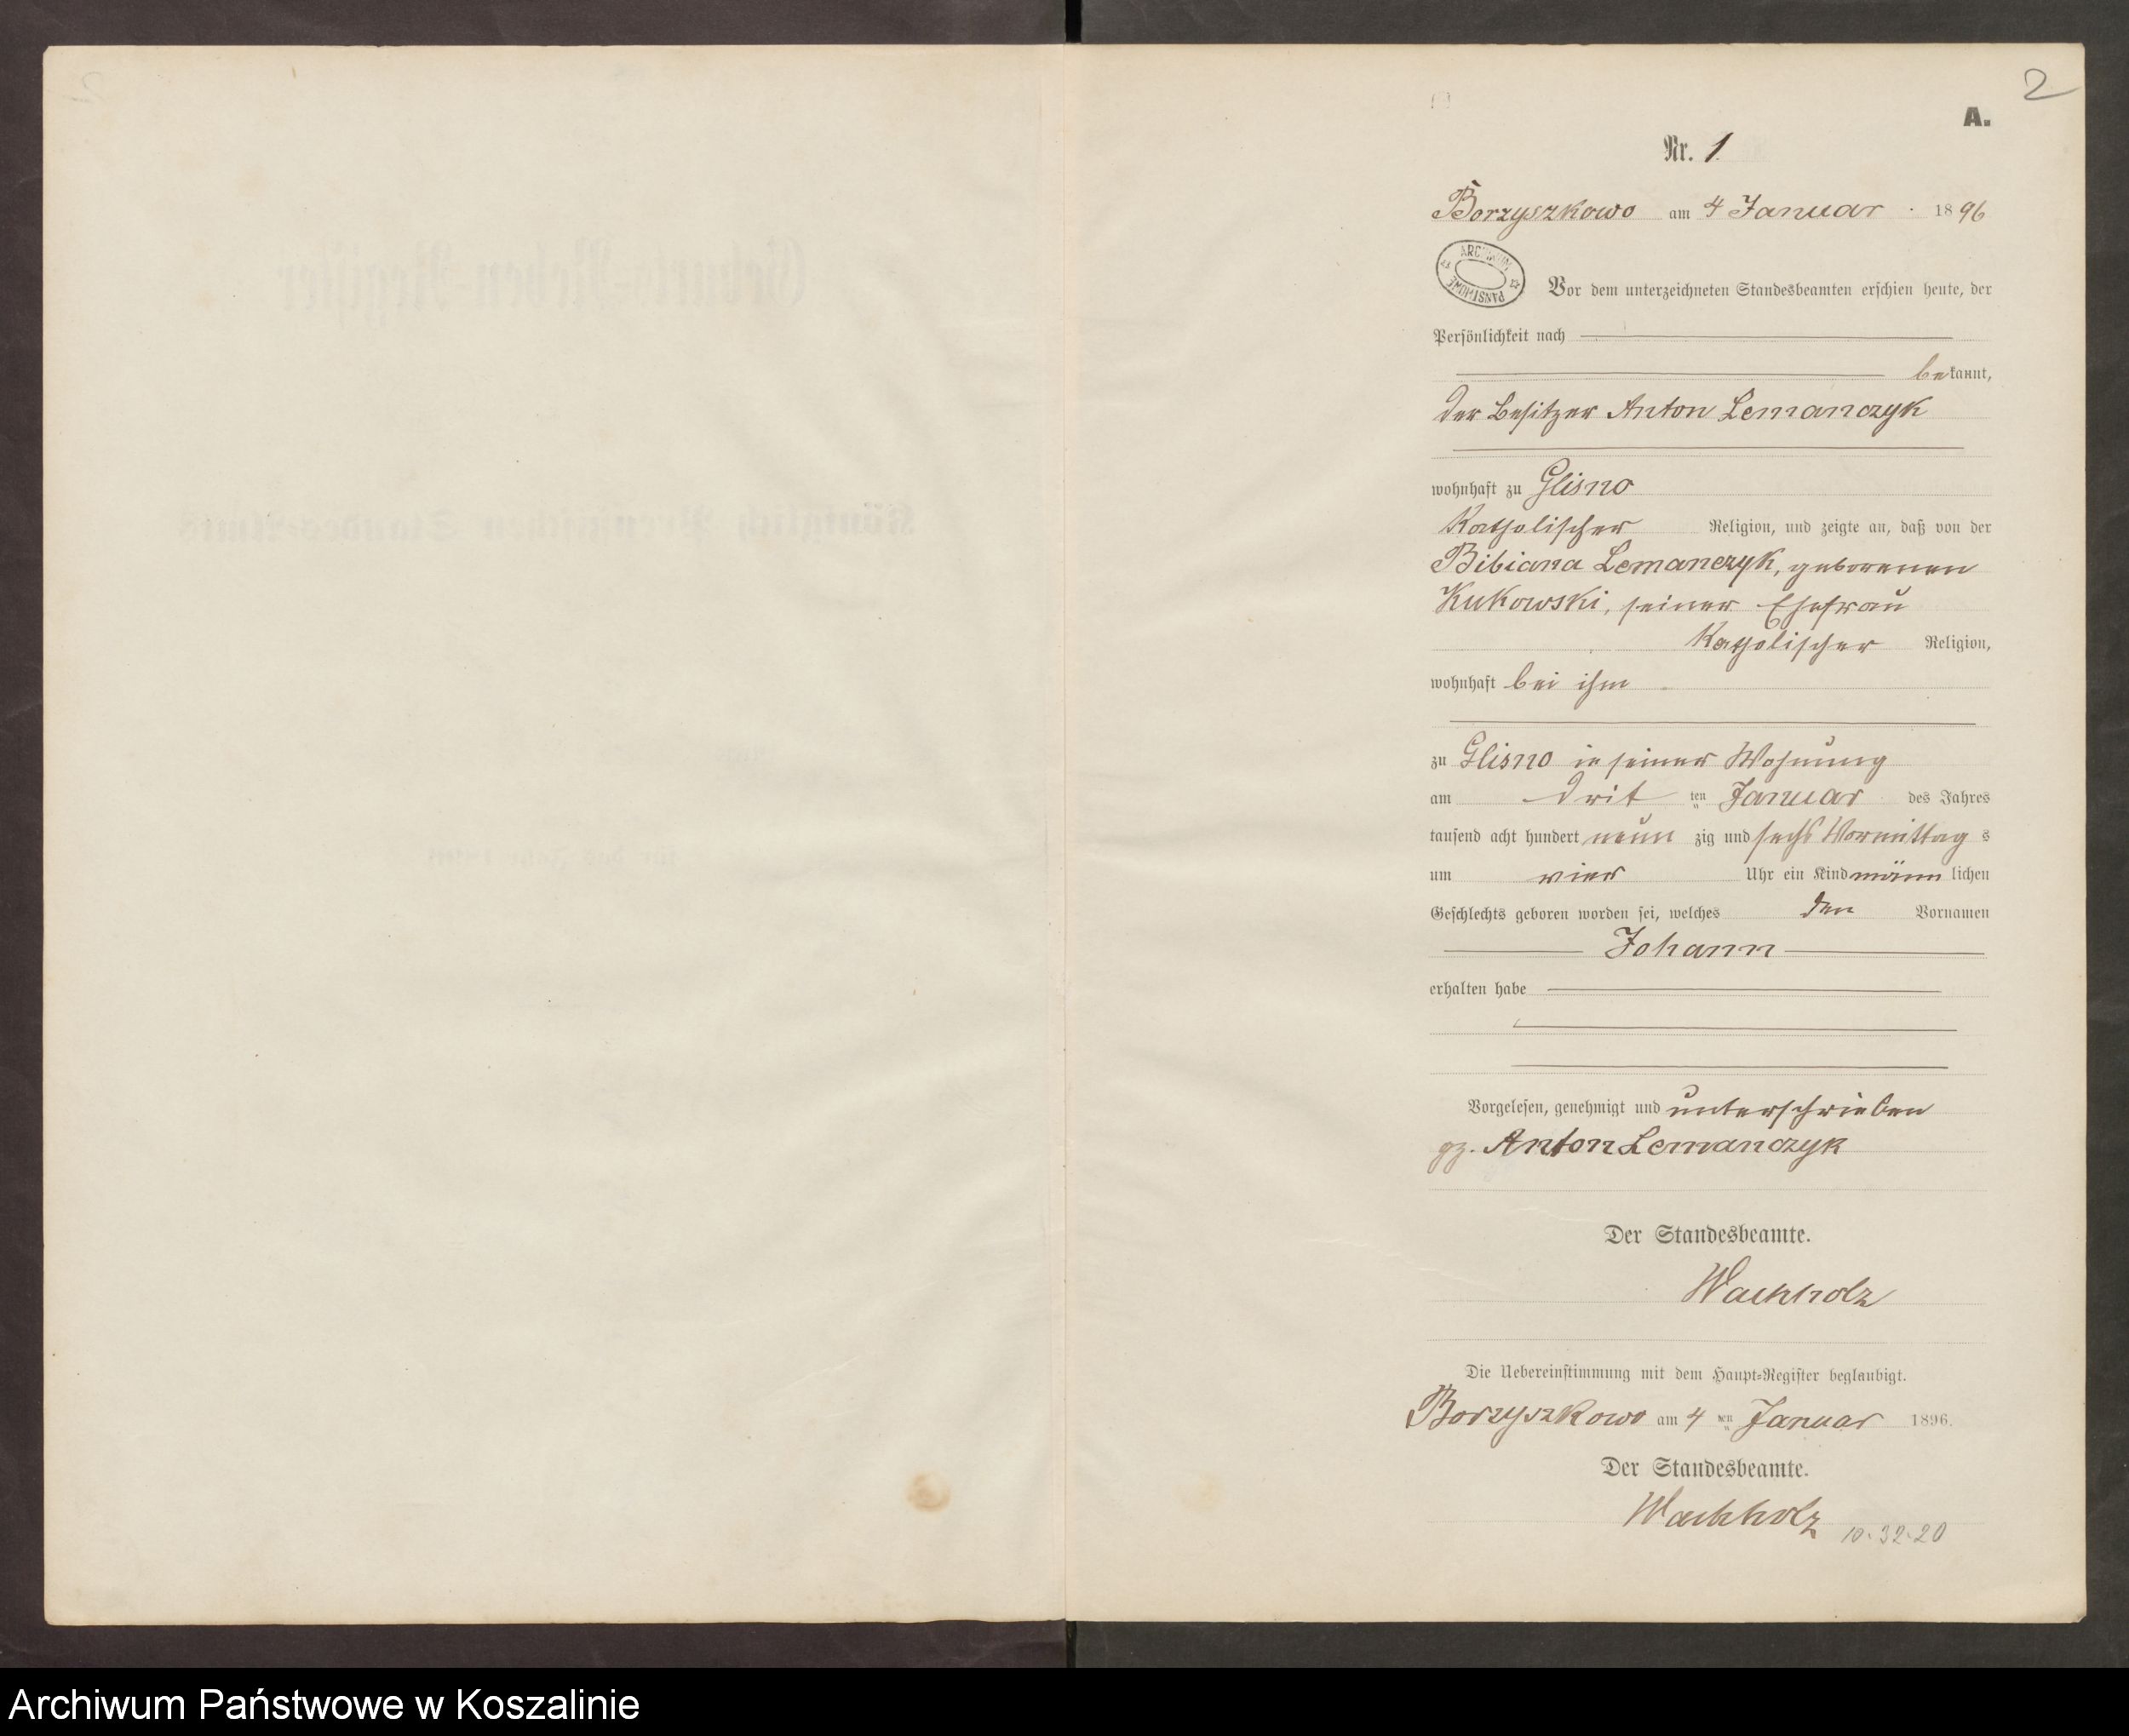 2
A.
Nr. 1
Borzyszkowo am 4 Januar 1896
ARCHIWUM PAŃSTWOWE
Vor dem unterzeichneten Standesbeamten erschien heute, der
Persönlichkeit nach
bekannt,
der Besitzer Anton Lemanczyk
wohnhaft zu Glisno
Katholischer Religion, und zeigte an, daß von der
Bibiana Lemanczyk, geborenen
Kukowski, seiner Ehefrau
Katholischer Religion,
wohnhaft bei ihm
zu Glisno in seiner Wohnung
am drit ten Januar des Jahres
tausend acht hundert neun zig und sechs Vormittag s
um vier Uhr ein Kind männ lichen
Geschlechts geboren worden sei, welches den Vornamen
Johann
erhalten habe
Vorgelesen, genehmigt und unterschrieben
gz. Anton Lemanczyk
Der Standesbeamte.
Wachholz
Die Uebereinstimmung mit dem Haupt-Register beglaubigt.
Borzyszkowo am 4 ten Januar 1896.
Der Standesbeamte.
Wachholz
10.32.20
Geburts-Neben-Register
Königlich Preußischen Standes-Amts
für das Jahr
Archiwum Państwowe w Koszalinie